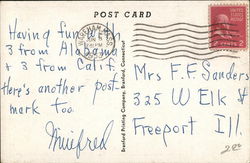 POST CARD
Having fun with
3 from Alabama
+ 3 from Calif.
Here's another post-
mark too
Winifred
Mrs F.F. Sanders
325 W Elk St
Freeport Ill.
Branford Printing Company, Branford, Connecticut
2